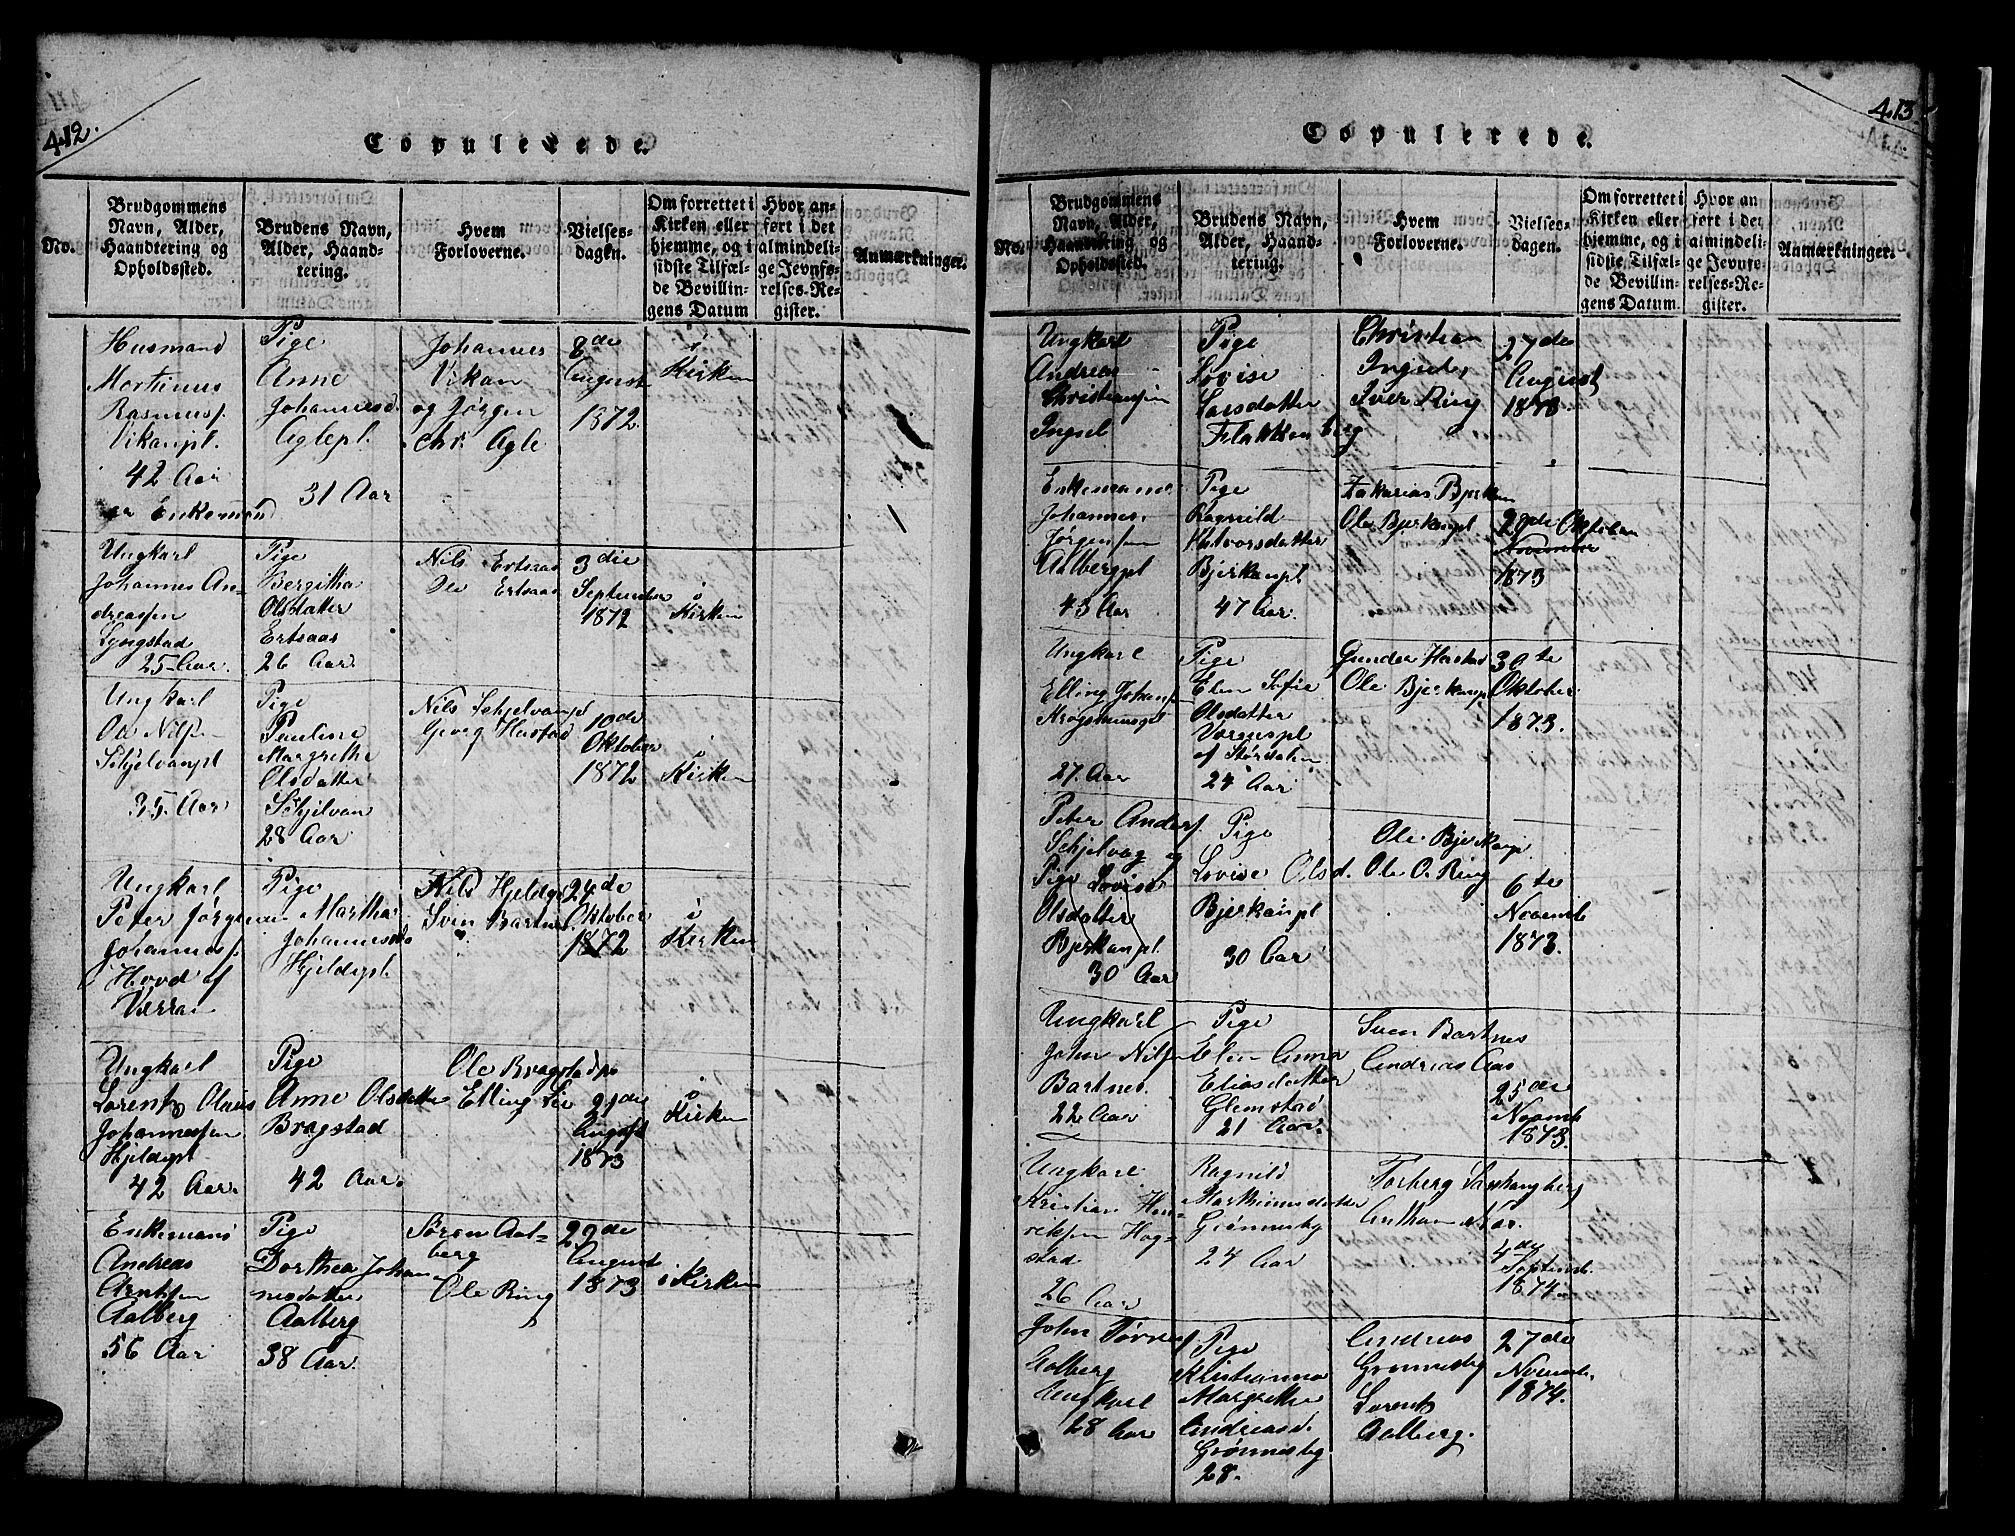 412.
Copulerede.
No.
Brudgommens
Navn, Alder,
Haandtering og
Opholdssted.
Brudens Navn,
Alder, Haand-
tering.
Hvem
Forloverne.
Vielses-
dagen.
Om forrettet i
Kirken eller
hjemme, og i
sidste Tilfæl-
de Bevillin-
gens Datum
Hvor an-
ført i det
almindeli-
ge Jevnfø-
relses-Re-
gister.
Anmærkninger.
Husmand
Mortinus
Rasmusf.
Vikanpl.
42 Aar
Enkemand
Pige
Anne
Johannesd.
Aglepl.
31 Aar
Johannes
Vikan
og Jørgen
Chr. Agle
8de
August
1872.
i
Kirken
Ungkarl
Johannes An-
dreassen
Lyngstad
25 Aar.
Pige
Bergitha
Olsdatter
Ertsaas
26 Aar.
Nils Ertsaas
Ole Ertsaas
3die
September
1872
i
Kirken
Ungkarl
Ole Nilsen
Schjelvanpl
35. Aar
Pige
Pauline
Margrethe
Olsdatter
Schjelvan
28 Aar
Nils Schjelvanpl
Georg Hustad
10de
Oktober
1872.
i
Kirken
Ungkarl
Peter Jørgen
Johannesf.
Hovd af
Værran
Pige
Martha
Johannesd
Hjeldepl.
Nils Hjeldpl
Sven Bartnes
24de
Oktober
1872
i
Kirken
Ungkarl
Lorents Olaus
Johannessen
Hjeldepl
42 Aar.
Pige
Anne Olsdatter
Bragstad
42 Aar.
Ole Bragstadpl
Elling Lie
21de
August
1873
i
Kirken
Enkemand
Andreas
Arntsen
Aalberg
56 Aar
Pige
Dorthea Johan
nesdatter
Aalberg
38 Aar.
Søren Aal-
berg
Ole Ring
22de
August
1873
i Kirken
413
Copulerede.
No.
Brudgommens
Navn, Alder,
Haandtering og
Opholdssted.
Brudens Navn,
Alder, Haand-
tering.
Hvem
Forloverne.
Vielses-
dagen.
Om forrettet i
Kirken eller
hjemme, og i
sidste Tilfæl-
de Bevillin-
gens Datum.
Hvor an
ført i det
almindeli-
ge Jevnfø-
relses-Re-
gister.
Anmærkninger.
Ungkarl
Andreas
Christiansen
Ingsel
Pige
Lovise
Larsdatter
Flakkenberg
Christian
Ingsel,
Iver Ring
27de
August
1873.
Enkemand
Johannes
Jørgensen
Aalbergpl
43 Aar
Pige
Ragnild
Halvorsdatter
Bjerkanpl
47 Aar.
Zakarias Bjerkan
Ole Bjerkanpl
28de Oktober
November
1873
Ungkarl
Elling Johansf
Krogsmingpl
27. Aar
Pige
Elen Sofie
Olsdatter
Værnespl
af Størdalen
24 Aar
Gunder Hustad
Ole Bjerkanpl
30te
Oktober
1873.
Peter Andersf.
Schjelvag og
Pige Lovise
Olsdatter
Bjerkanpl.
30 Aar
Pige
Lovise Olsd.
Bjerkanpl
30 Aar
Ole Bjerkanp.
Ole O. Ring
6te
Novemb
1873.
Ungkarl
John Nilsen
Bartnes.
22 Aar
Pige
Elen Anna
Eliasdatter
Glemstad
21 Aar.
Sven Bartnes
Andreas Aas
25de
Novemb
1873.
Ungkarl
Kristian Hen-
riksen Hog-
stad
26 Aar
Ragnild
Marthinusdatter
Grønnesby
24 Aar
Torberg
Anthon
4de
Septemb.
1874.
John Tørrisf
Aalberg
Ungkarl
28 Aar
Pige
Kristianna
Margrethe
Andreasd.
Grønnesby
28.
Andreas
Grønnesby
Lorents
Aalberg.
27de
Novemb.
1874.